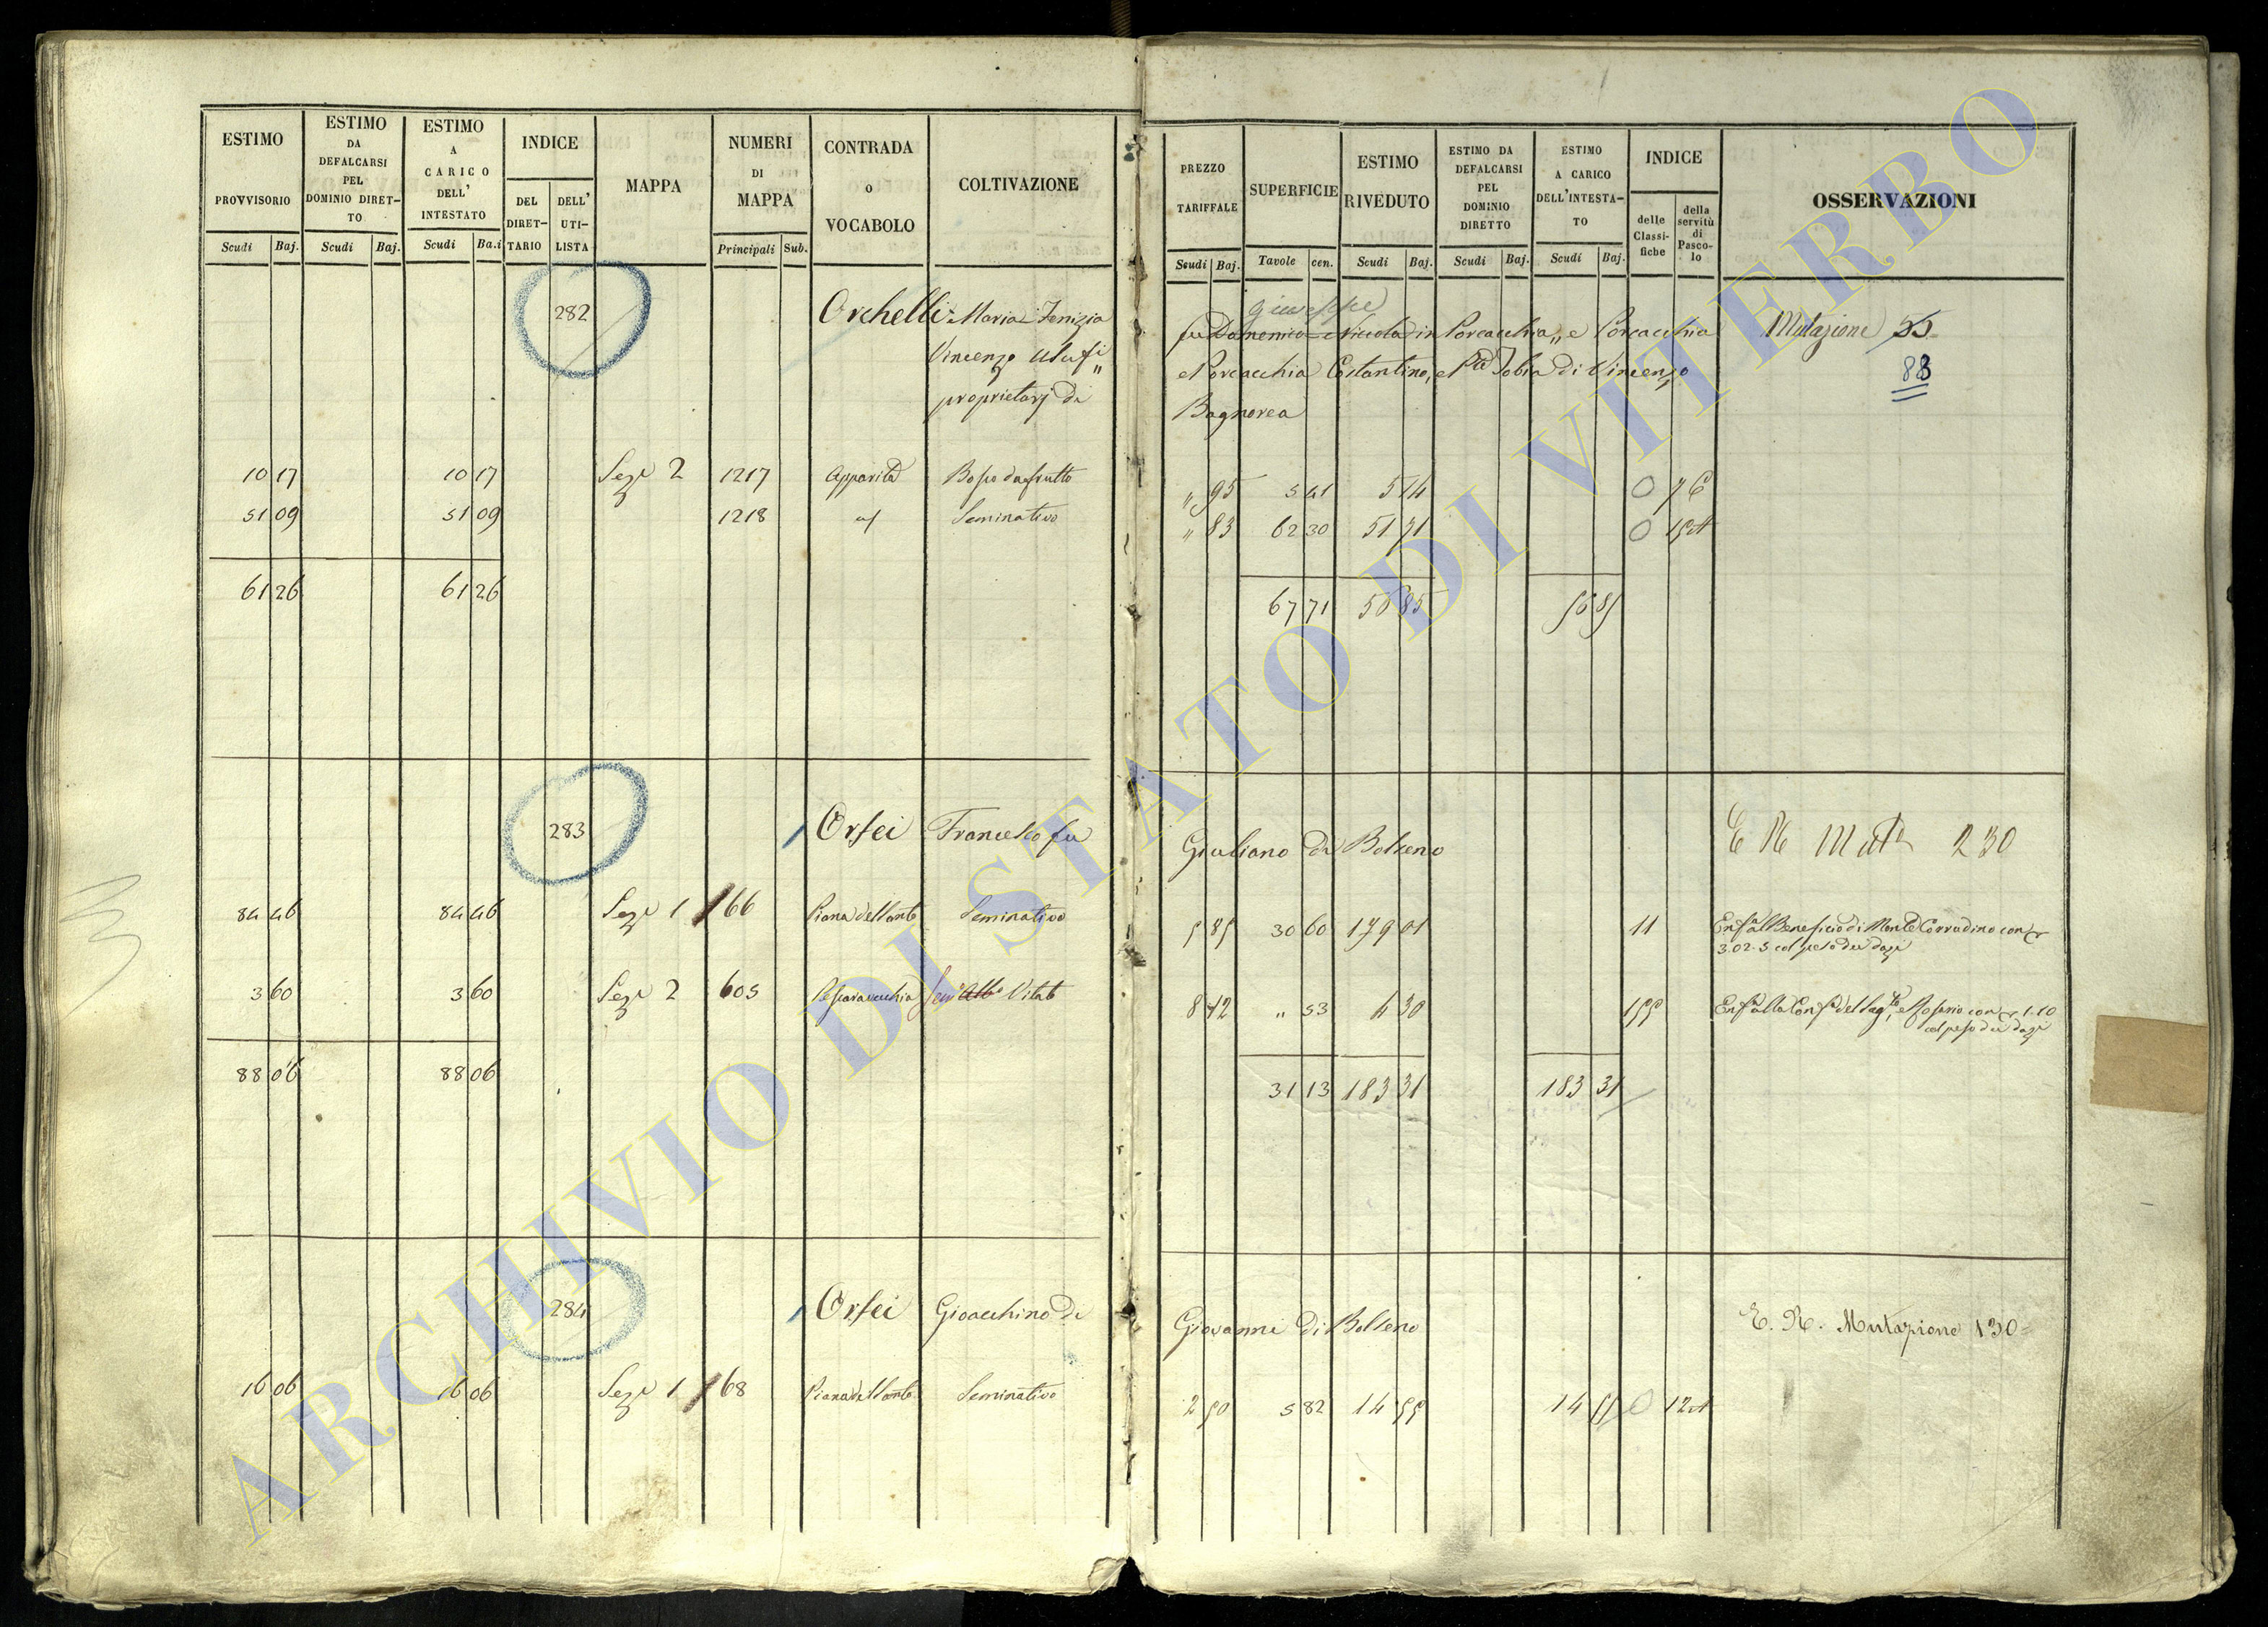 ESTIMO PROVVISORIO
ESTIMO DA DEFALCARSI PEL DOMINIO DIRET-TO
ESTIMO A CARICO DELL' INTESTATO
INDICE
DEL DIRET-TARIO
DELL' UTI-LISTA
MAPPA
NUMERI DI MAPPA
CONTRADA O VOCABOLO
COLTIVAZIONE
Scudi Baj. Scudi Baj. Scudi Ba.i Principali Sub.
PREZZO TARIFFALE
SUPERFICIE
ESTIMO RIVEDUTO
ESTIMO DA DEFALCARSI PEL DOMINIO DIRETTO
ESTIMO A CARICO DELL'INTESTA-TO
INDICE
delle Classi-fiche
della servitù di Pasco-lo
OSSERVAZIONI
Scudi Baj. Tavole cen. Scudi Baj. Scudi Baj. Scudi Baj.
Giuseppe
282 Orchelli Maria Fenizia fu Domenico e Niccola in Porcacchia, e Porcacchia Mutazione 55
Vincenzo e Porcacchia Costantino, e Tobia di Vincenzo 88
proprietarj di Bagnorea
10 17 10 17 Sez.e 2 1217 Apparita Bosco da frutto " 95 5 41 5 14 0 7 C
51 09 51 09 1218 Seminativo " 83 62 30 51 71 0 15 A
61 26 61 26 67 71 56 85 56 85
283 Orsei Francesco fu Giuliano di Bolseno E R Mut.e 230
84 46 84 46 Sez.e 1 166 Piana dell'Conte Seminativo 5 85 30 60 179 01 11 Enf.a al Beneficio di Monte Corradino con
3.02.5 col peso dei dazj
3 60 3 60 Sez.e 2 605 Pescara vecchia Vitato 8 12 " 53 4 30 155 Enf.a alla Conf.a del Sag.to e Rosario con 1.10
col peso dei dazj
88 06 88 06 31 13 183 31 183 31
284 Orsei Gioacchino di Giovanni di Bolseno E. R. Mutazione 130
16 06 16 06 Sez.e 1 168 Piana dell'Conte Seminativo 2 50 5 82 14 55 14 55 0 12 A
ARCHIVIO DI STATO DI VITERBO